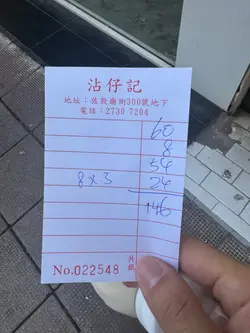 沾仔記
地址：佐敦廟街390號地下
電話：2730 7204
60
8
54
8 x 3 24
146
共
銀
No.022548